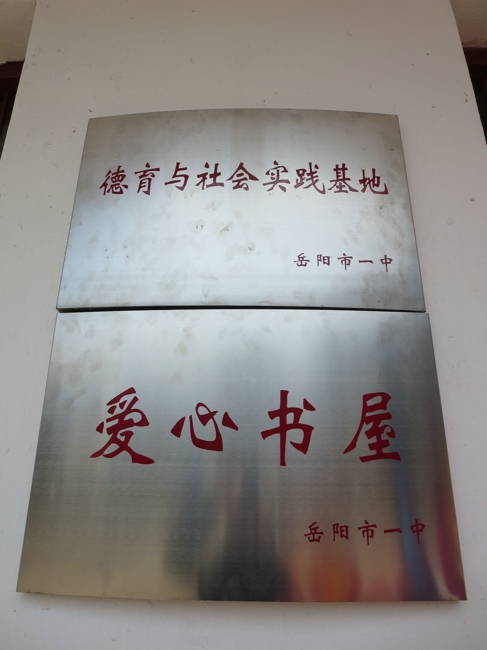 德育与社会实践基地
岳阳市一中
爱心书屋
岳阳市一中